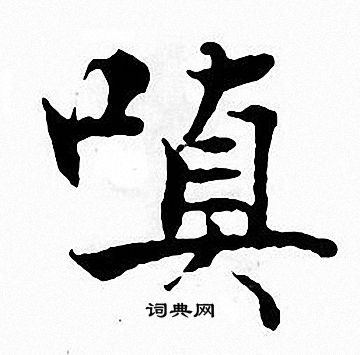 嗔
词典网